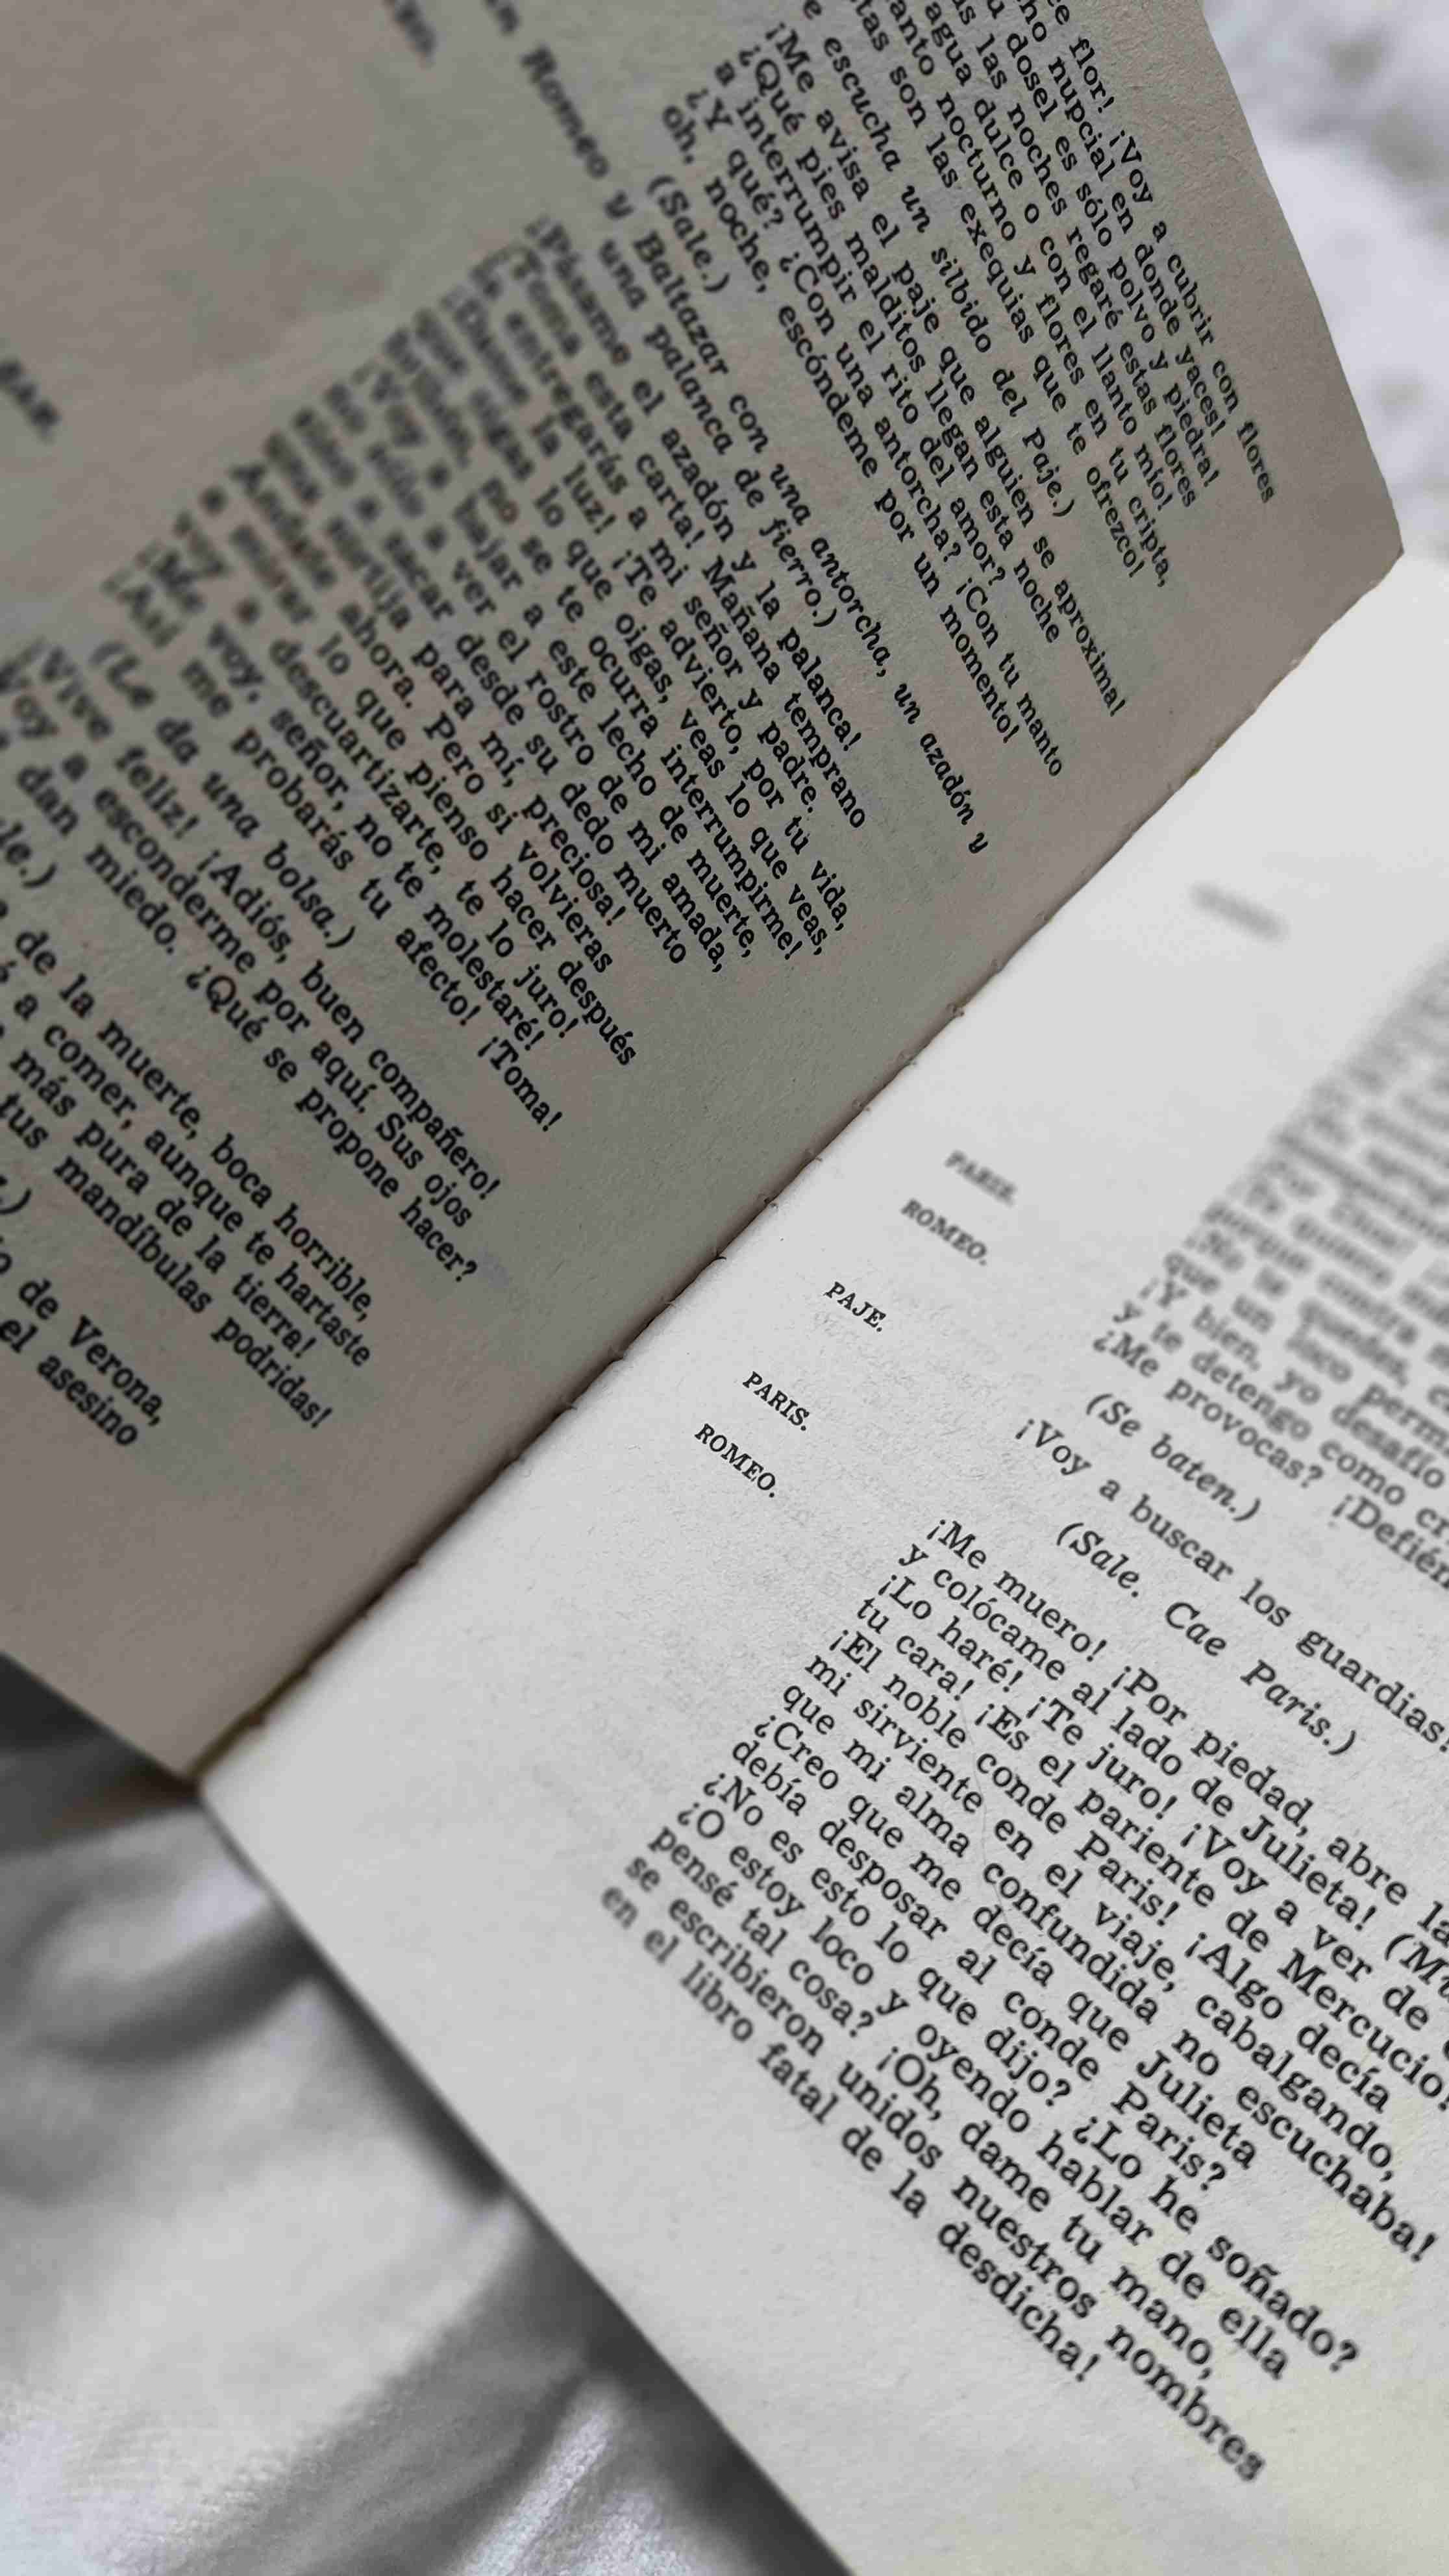 ce flor! ¡Voy a cubrir con flores
cho nupcial en donde yaces!
u dosel es sólo polvo y piedra!
as las noches regaré estas flores
agua dulce o con el llanto mío!
anto nocturno y flores en tu cripta,
tas son las exequias que te ofrezco!
e escucha un silbido del Paje.)
¡Me avisa el paje que alguien se aproxima!
¿Qué pies malditos llegan esta noche
a interrumpir el rito del amor?
¿Y qué? ¿Con una antorcha? ¡Con tu manto
oh, noche, escóndeme por un momento!
(Sale.)
Romeo y Baltazar con una antorcha, un azadón y
una palanca de fierro.)
¡Pásame el azadón y la palanca!
¡Toma esta carta! Mañana temprano
la entregarás a mi señor y padre.
¡Dame la luz! ¡Te advierto, por tu vida,
que oigas lo que oigas, veas lo que veas,
no se te ocurra interrumpirme!
¡Voy a bajar a este lecho de muerte,
no sólo a ver el rostro de mi amada,
sino a sacar desde su dedo muerto
una sortija para mí, preciosa!
Ándate ahora. Pero si volvieras
a mirar lo que pienso hacer después
voy a descuartizarte, te lo juro!
¡Me voy, señor, no te molestaré!
¡Así me probarás tu afecto! ¡Toma!
(Le da una bolsa.)
¡Vive feliz! ¡Adiós, buen compañero!
Voy a esconderme por aquí. Sus ojos
dan miedo. ¿Qué se propone hacer?
le.)
de la muerte, boca horrible,
é a comer, aunque te hartaste
más pura de la tierra!
tus mandíbulas podridas!
.)
o de Verona,
el asesino
PARIS.
ROMEO.
PAJE.
PARIS.
ROMEO.
¡No te
que un loco permi
¡Y bien, yo desafío
y te detengo como cri
¿Me provocas? ¡Defién
(Se baten.)
¡Voy a buscar los guardias!
(Sale. Cae Paris.)
¡Me muero! ¡Por piedad, abre la
y colócame al lado de Julieta! (Mu
¡Lo haré! ¡Te juro! ¡Voy a ver de c
tu cara! ¡Es el pariente de Mercucio!
¡El noble conde Paris! ¡Algo decía
mi sirviente en el viaje, cabalgando,
que mi alma confundida no escuchaba!
¿Creo que me decía que Julieta
debía desposar al conde Paris?
¿No es esto lo que dijo? ¿Lo he soñado?
¿O estoy loco y oyendo hablar de ella
pensé tal cosa? ¡Oh, dame tu mano,
se escribieron unidos nuestros nombres
en el libro fatal de la desdicha!